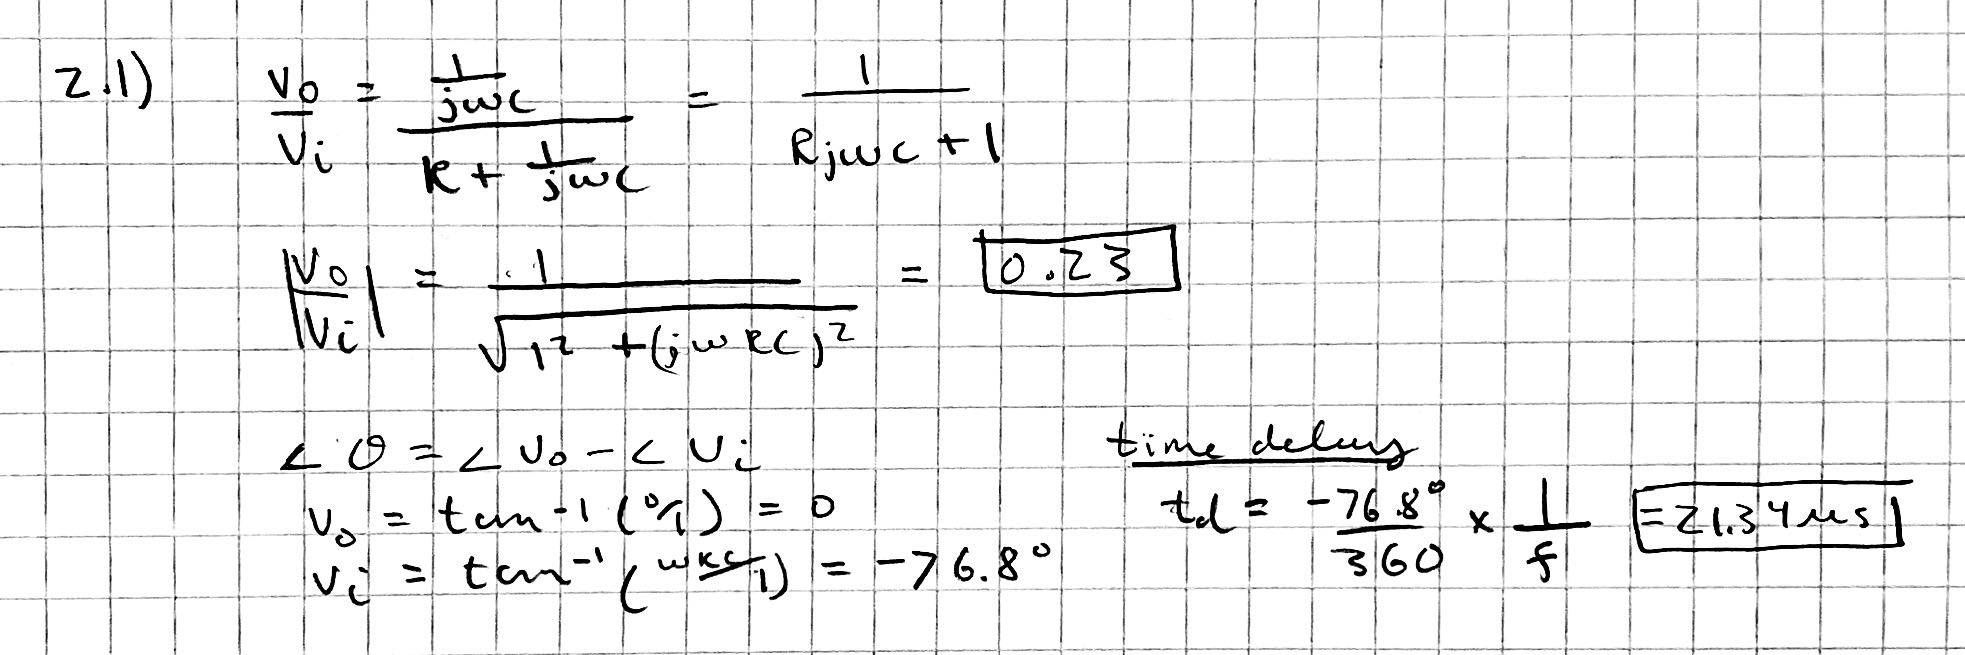 2.1) Vo/Vi = (1/jωC)/(R + 1/jωC) = 1/(RjωC + 1)
|Vo/Vi| = 1/√(1² + (jωRC)²) = 0.23
∠θ = ∠Vo - ∠Vi
Vo = tan-1 (0/1) = 0
Vi = tan-1 (ωRC/1) = -76.8°
time delay
td = -76.8°/360 × 1/f = 21.34 μs